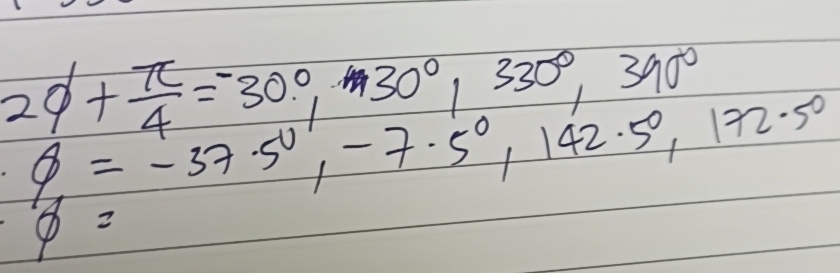 2ϕ + π/4 = -30°, 30°, 330°, 390°
ϕ = -37.5°, -7.5°, 142.5°, 172.5°
ϕ =